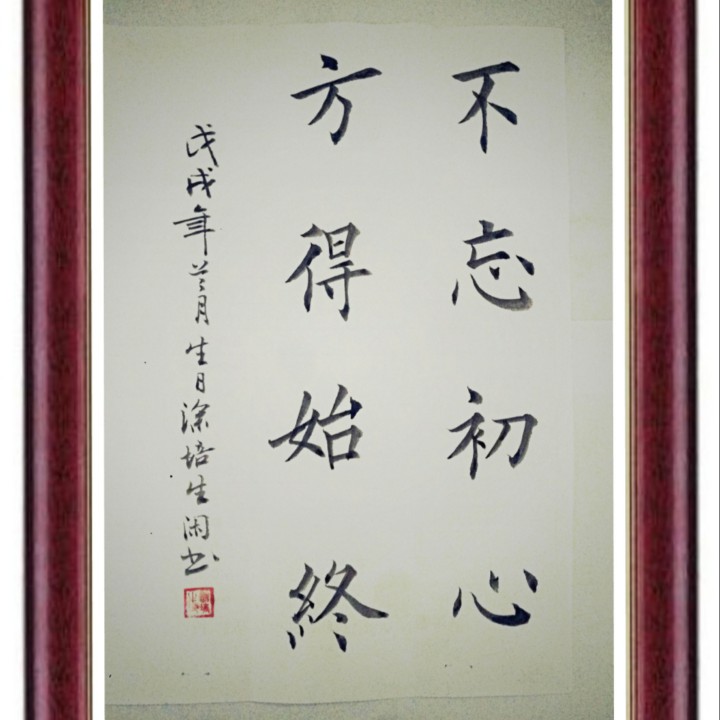 不忘初心
方得始終
戊戌年兰月生日涂培生闲书